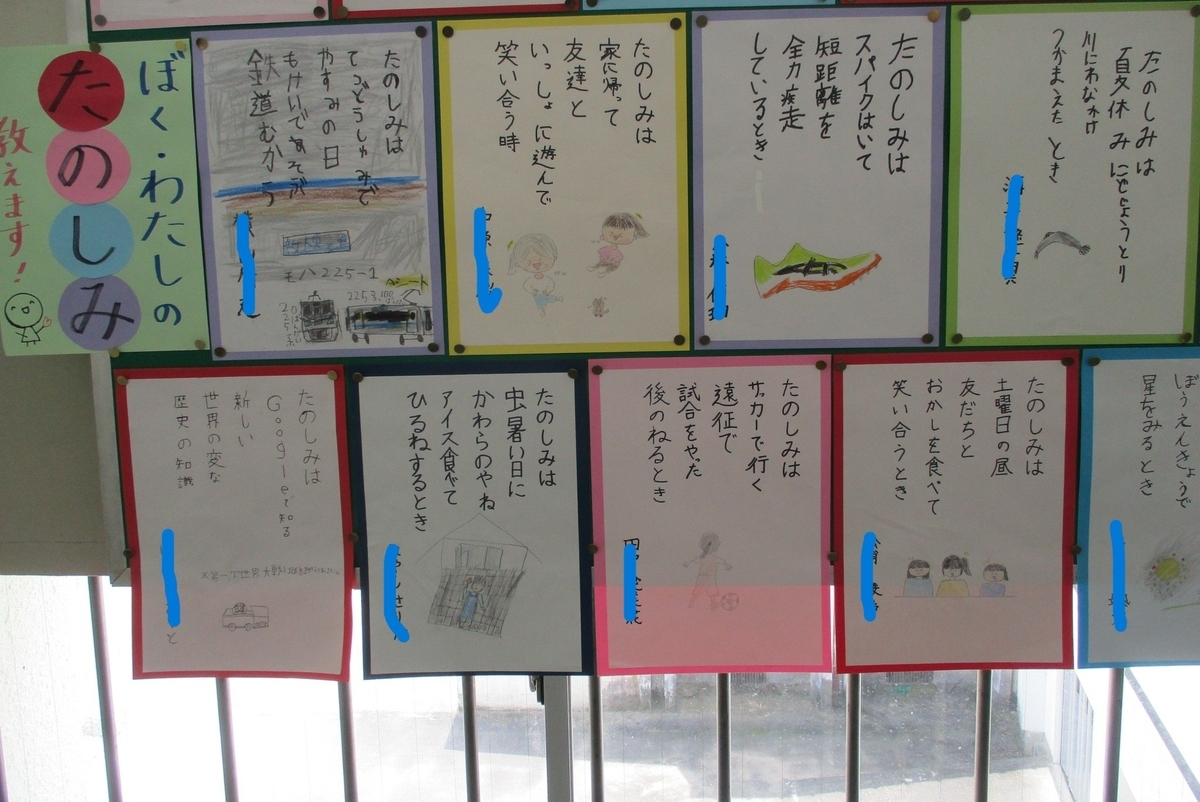 ぼく・わたしの
たのしみ
教えます!
たのしみは
てつどうしゅみで
やすみの日
もけいであそぶ
鉄道むかう
モハ225-1
たのしみは
家に帰って
友達と
いっしょに遊んで
笑い合う時
たのしみは
スパイクはいて
短距離を
全力疾走
しているとき
たのしみは
夏休みにどじょうとり
川にわなかけ
つかまえたとき
たのしみは
Googleで知る
新しい
世界の変な
歴史の知識
たのしみは
虫暑い日に
かわらのやね
アイス食べて
ひるねするとき
たのしみは
サッカーで行く
遠征で
試合をやった
後のねるとき
たのしみは
土曜日の昼
友だちと
おかしを食べて
笑い合うとき
ぼうえんきょうで
星をみるとき